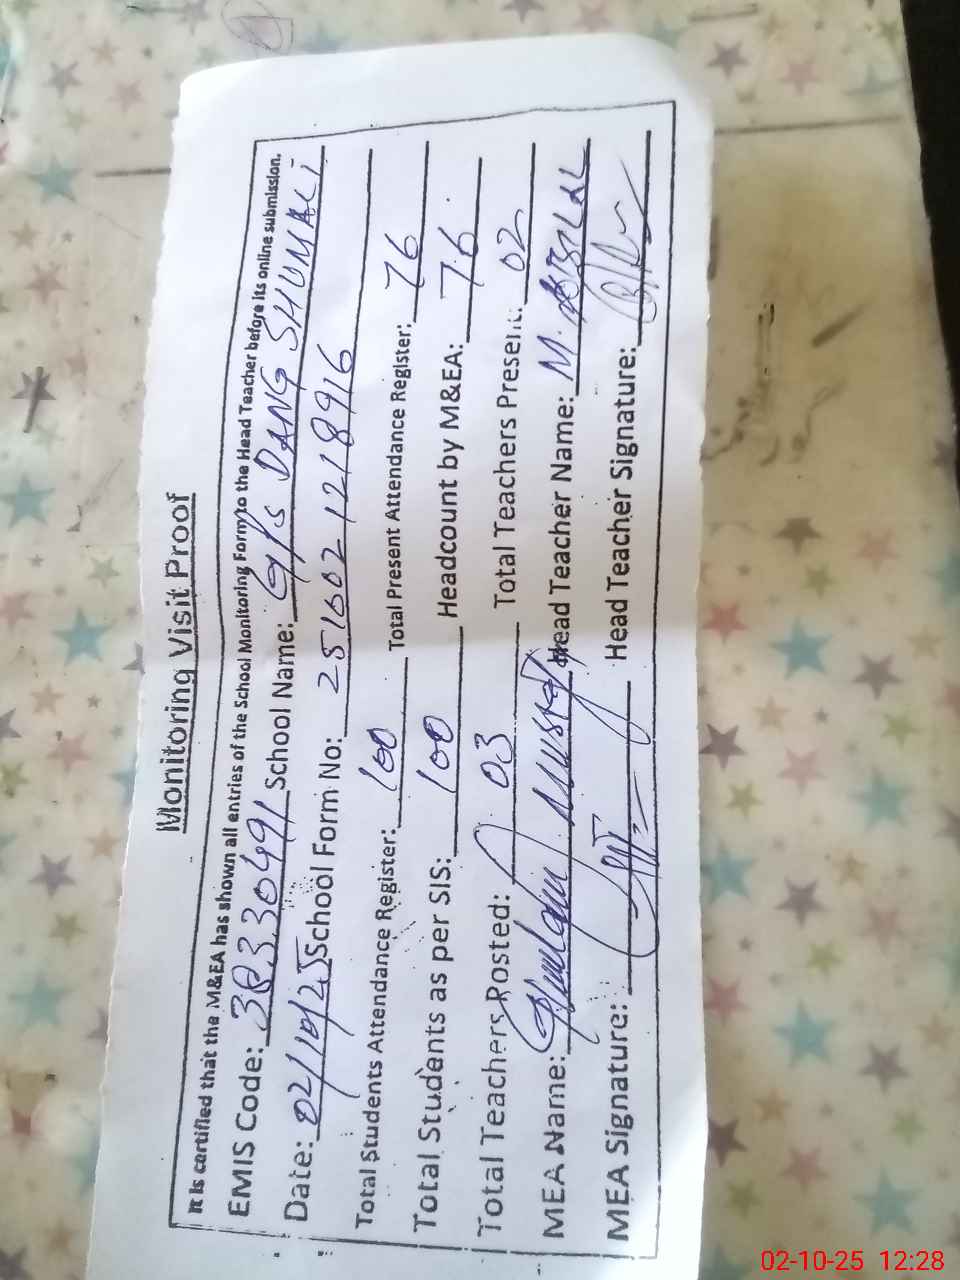 Monitoring Visit Proof
It is certified that the M&EA has shown all entries of the School Monitoring Form to the Head Teacher before its online submission.
EMIS Code: 38330491 School Name: G/P/S DANG SHUMALI
Date: 02/10/25 School Form No: 2516021218916
Total Students Attendance Register: 100 Total Present Attendance Register: 76
Total Students as per SIS: 100 Headcount by M&EA: 76
Total Teachers Posted: 03 Total Teachers Present: 02
MEA Name: Ghulam Mustafa Head Teacher Name: M.
MEA Signature: Head Teacher Signature:
02-10-25 12:28